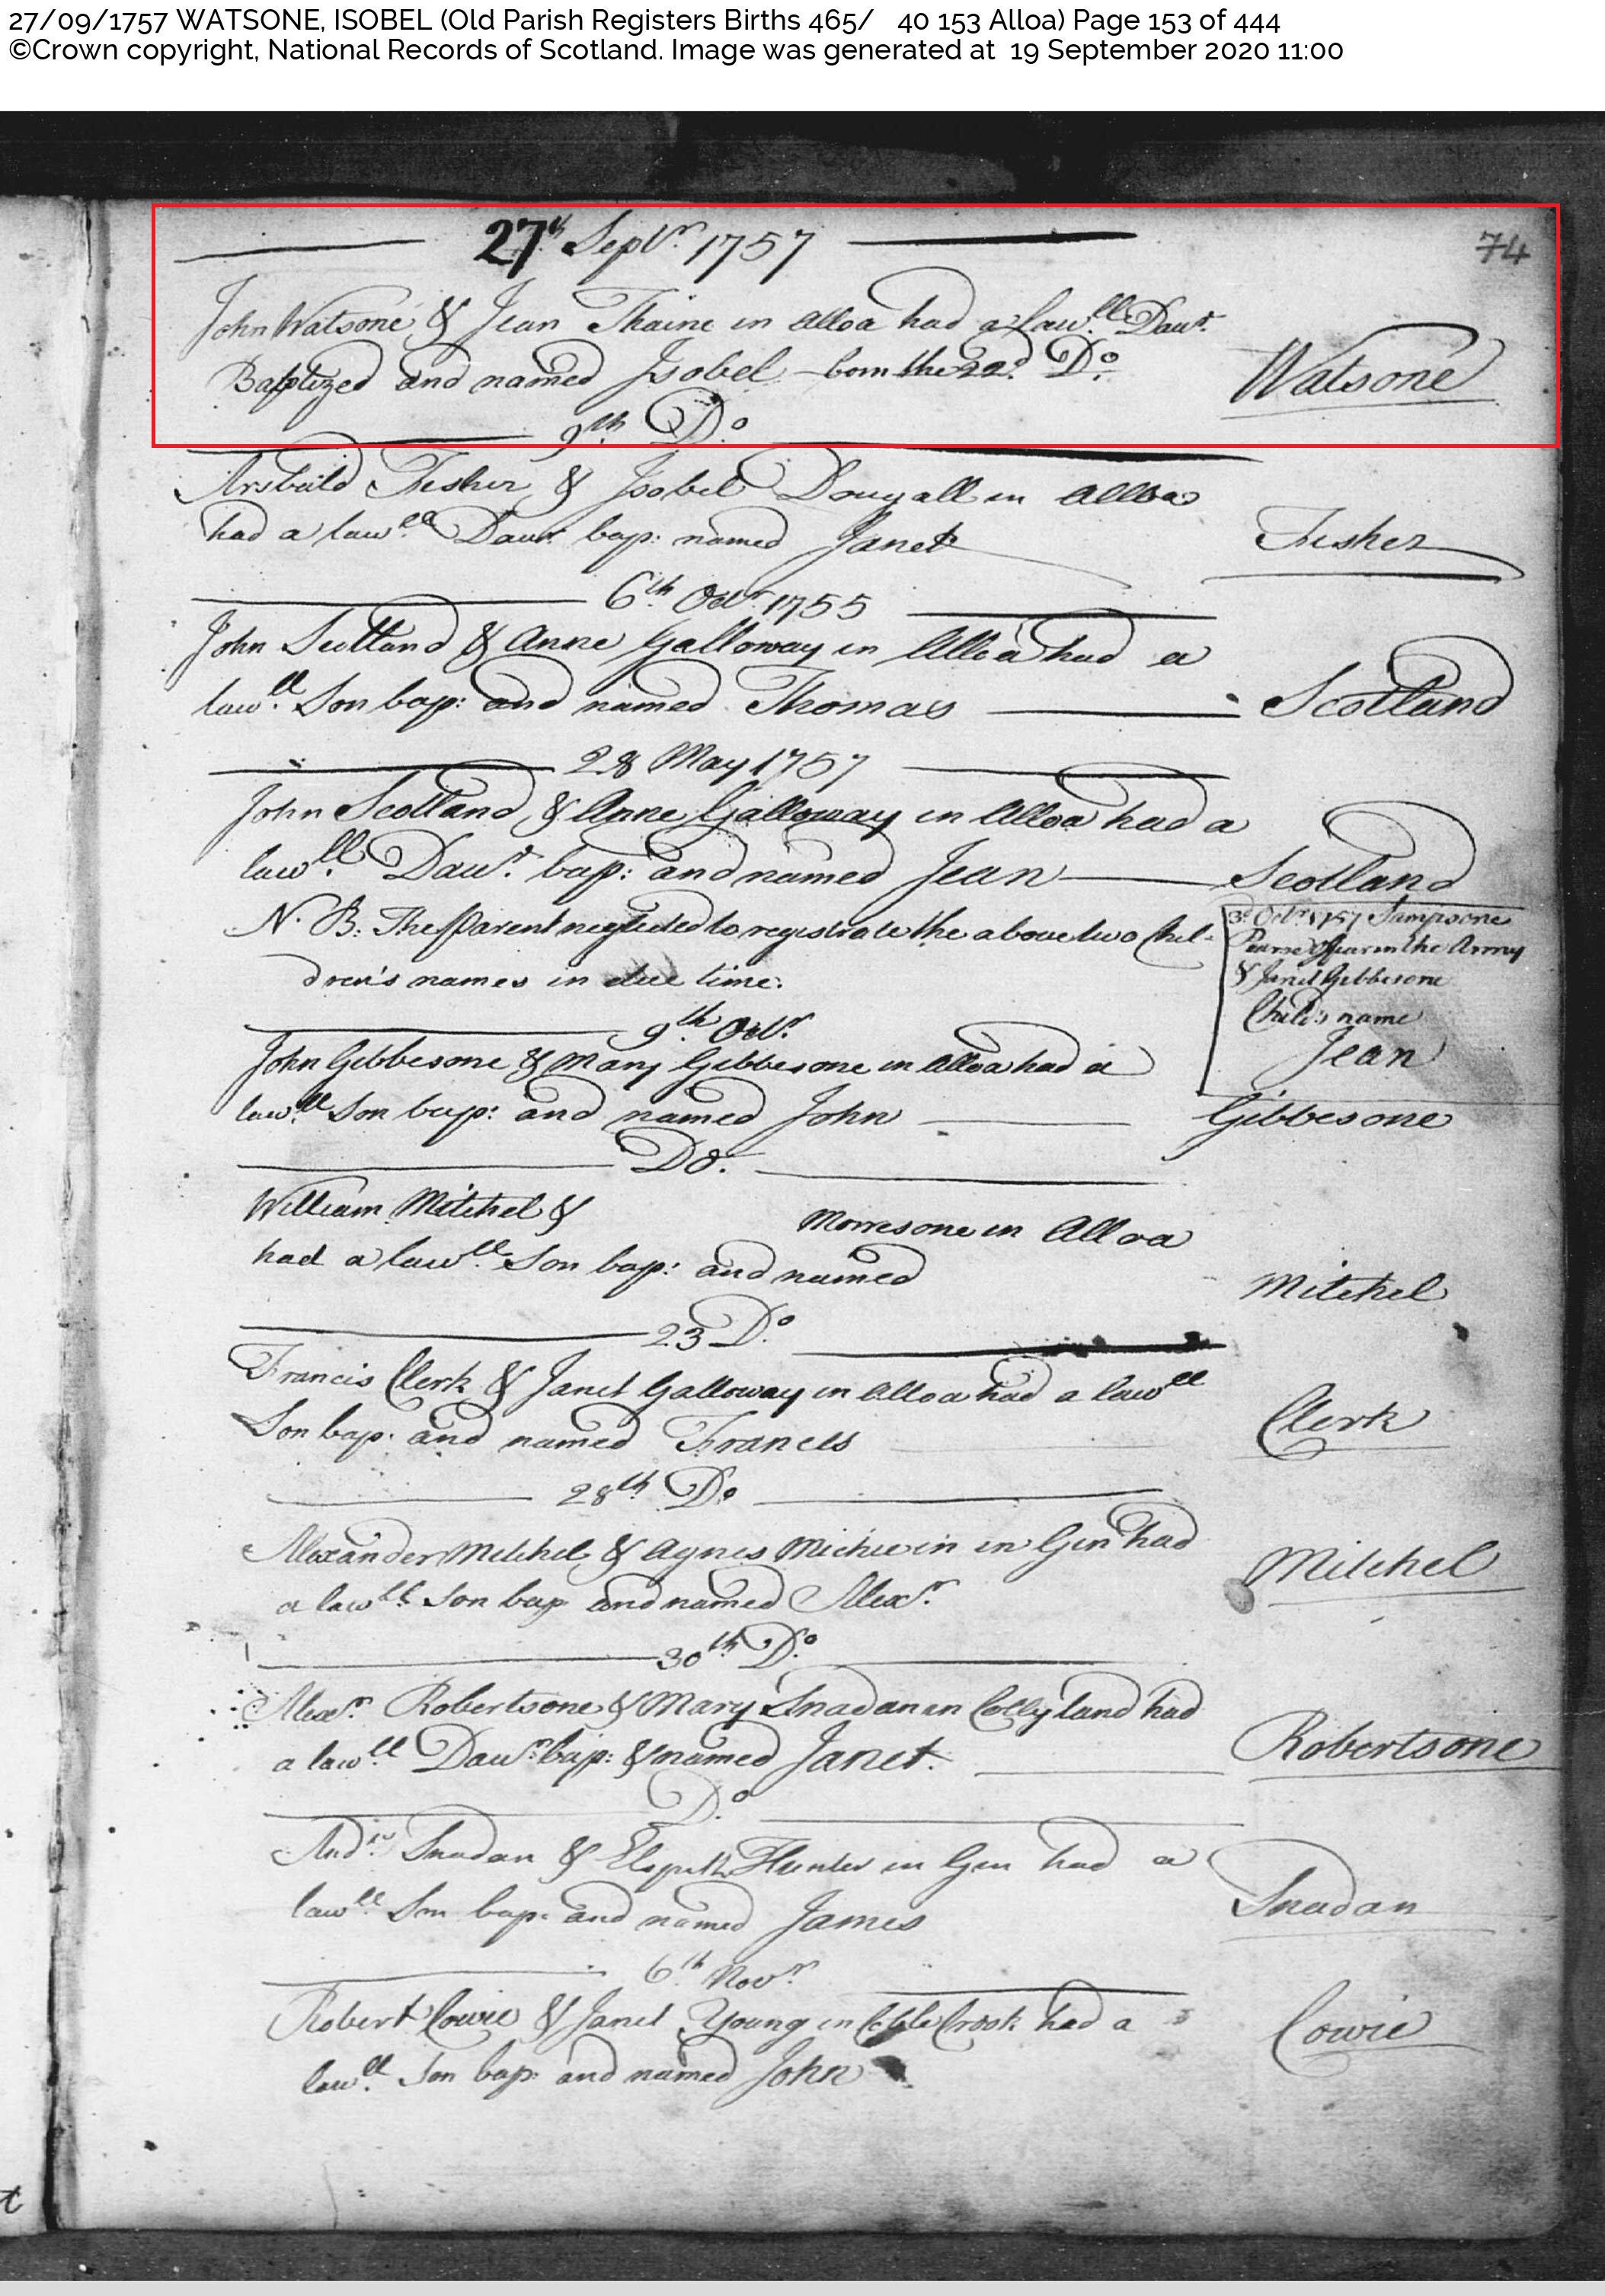 27/09/1757 WATSONE, ISOBEL (Old Parish Registers Births 465/ 40 153 Alloa) Page 153 of 444
©Crown copyright, National Records of Scotland. Image was generated at 19 September 2020 11:00
27th Septr. 1757
74
John Watsone & Jean Thaine in Alloa had a Lawll. Dawr.
Baptized and named Isobel – born the 22d. Do.
Watsone
9th. Do.
Fisher & Isobel Dougall in Alloa
had a lawll Dawr. bap: named Janet
Fisher
6th. Octr. 1755
John Scotland & Anne Galloway in Alloa had a
lawll. Son bap: and named Thomas
Scotland
28 May 1757
John Scotland & Anne Galloway in Alloa had a
lawll. Dawr. bap: and named Jean
Scotland
N. B: The Parent neglected to registrate the above two Chil-
dren's names in due time.
3d Octr 1757 Sampsone
officer in the Army
& Janet Gibbesone
Child's name
Jean
9th. Octr.
John Gibbesone & Mary Gibbesone in Alloa had a
lawll Son bap: and named John
Gibbesone
Do.
William Mitchel & Morresone in Alloa
had a lawll. Son bap: and named
Mitchel
23 Do.
Francis Clerk & Janet Galloway in Alloa had a lawll
Son bap. and named Francis
Clerk
28th Do.
Alexander Mitchel & Agnes in Gen had
a lawll. Son bap and named Alexr.
Mitchel
30th Do.
Alexr. Robertsone & Mary Snadan in Collyland had
a lawll Dawr. bap: & named Janet.
Robertsone
Do.
Andw. Snadan & Elspeth Hunter in Gen had a
lawll Son bap. and named James
Snadan
6th. Novr.
Robert Cowie & Janet Young in Coble Crook had a
lawll. Son bap: and named John
Cowie